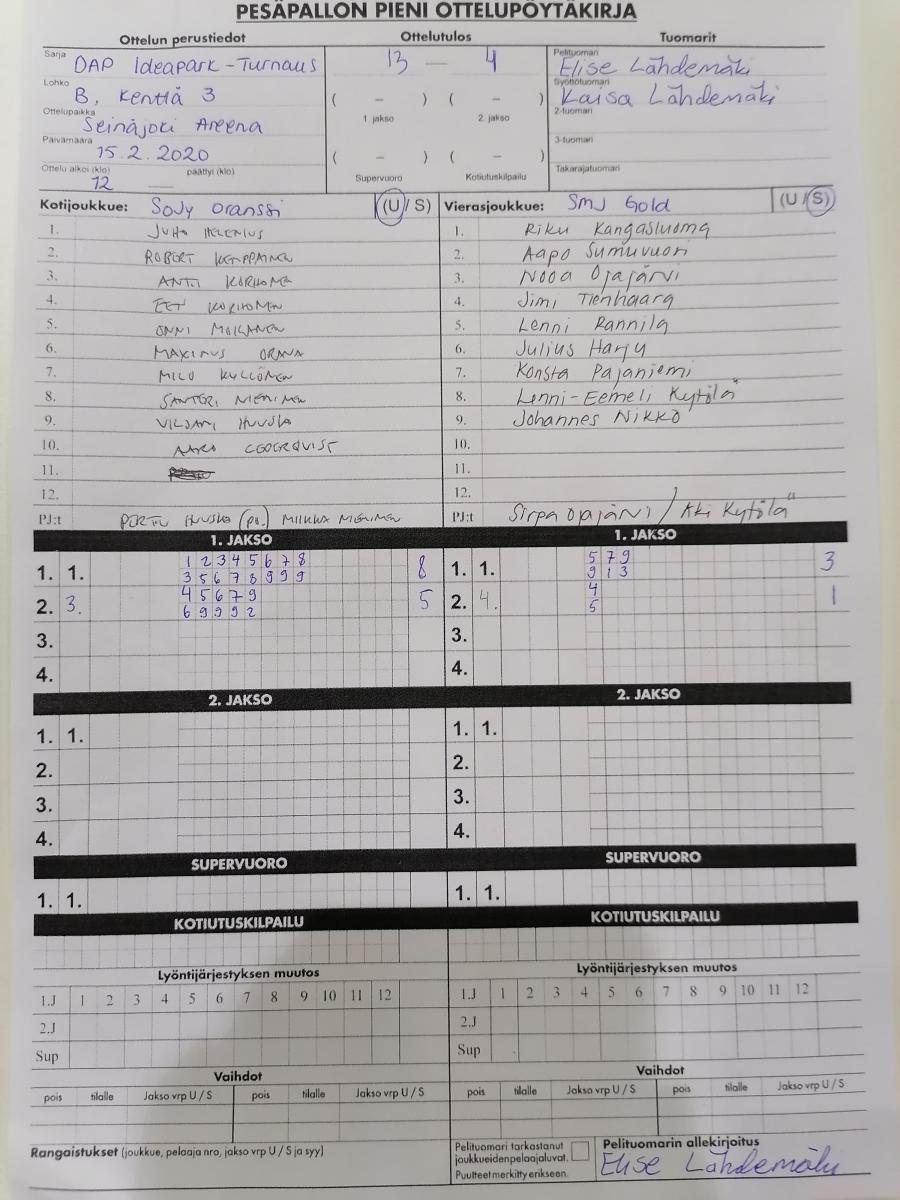 PESÄPALLON PIENI OTTELUPÖYTÄKIRJA
Ottelun perustiedot
Sarja OAP Ideapark-Turnaus
Lohko B, Kenttä 3
Ottelupaikka Seinäjoki Areena
Päivämäärä 15.2.2020
Ottelu alkoi (klo) 12 päättyi (klo)
Ottelutulos
13 — 4
( – ) ( – )
1. jakso 2. jakso
( – ) ( – )
Supervuoro Kotiutuskilpailu
Tuomarit
Pelituomari Elise Lähdemäki
Syöttötuomari Kaisa Lähdemäki
2-tuomari
3-tuomari
Takarajatuomari
Kotijoukkue: SoJy Oranssi (U / S)
1. JUHO HELENIUS
2. ROBERT KEMPPAINEN
3. ANTI KORHONEN
4. EET KORHONEN
5. ONNI MOILANEN
6. MAXIMUS ORAVA
7. MILO KYLLÖNEN
8. SANTERI NIEMINEN
9. VILJAMI HUUSKO
10. CEDERQVIST
11.
12.
PJ:t PERTTU HUUSKO (po.) MIIKKA NIEMINEN
Vierasjoukkue: SMJ Gold (U / S)
1. Riku Kangasluoma
2. Aapo Sumuvuori
3. Nooa Ojajärvi
4. Jimi Tienhaara
5. Lenni Rannila
6. Julius Harju
7. Konsta Pajaniemi
8. Lenni-Eemeli Kytölä
9. Johannes Nikko
10.
11.
12.
PJ:t Sirpa Ojajärvi / Aki Kytölä
1. JAKSO
1. 1. 1 2 3 4 5 6 7 8 8
3 5 6 7 8 9 9 9
2. 3. 4 5 6 7 9 5
6 9 9 9 2
3.
4.
1. JAKSO
1. 1. 5 7 9 3
9 1 3
2. 4. 4 1
5
3.
4.
2. JAKSO
1. 1.
2.
3.
4.
2. JAKSO
1. 1.
2.
3.
4.
SUPERVUORO
1. 1.
SUPERVUORO
1. 1.
KOTIUTUSKILPAILU
KOTIUTUSKILPAILU
Lyöntijärjestyksen muutos
1.J 1 2 3 4 5 6 7 8 9 10 11 12
2.J
Sup
Lyöntijärjestyksen muutos
1.J 1 2 3 4 5 6 7 8 9 10 11 12
2.J
Sup
Vaihdot
pois tilalle Jakso vrp U / S pois tilalle Jakso vrp U / S
Vaihdot
pois tilalle Jakso vrp U / S pois tilalle Jakso vrp U / S
Rangaistukset (joukkue, pelaaja nro, jakso vrp U / S ja syy)
Pelituomari tarkastanut
joukkueidenpelaajaluvat.
Puutteet merkitty erikseen.
Pelituomarin allekirjoitus
Elise Lähdemäki